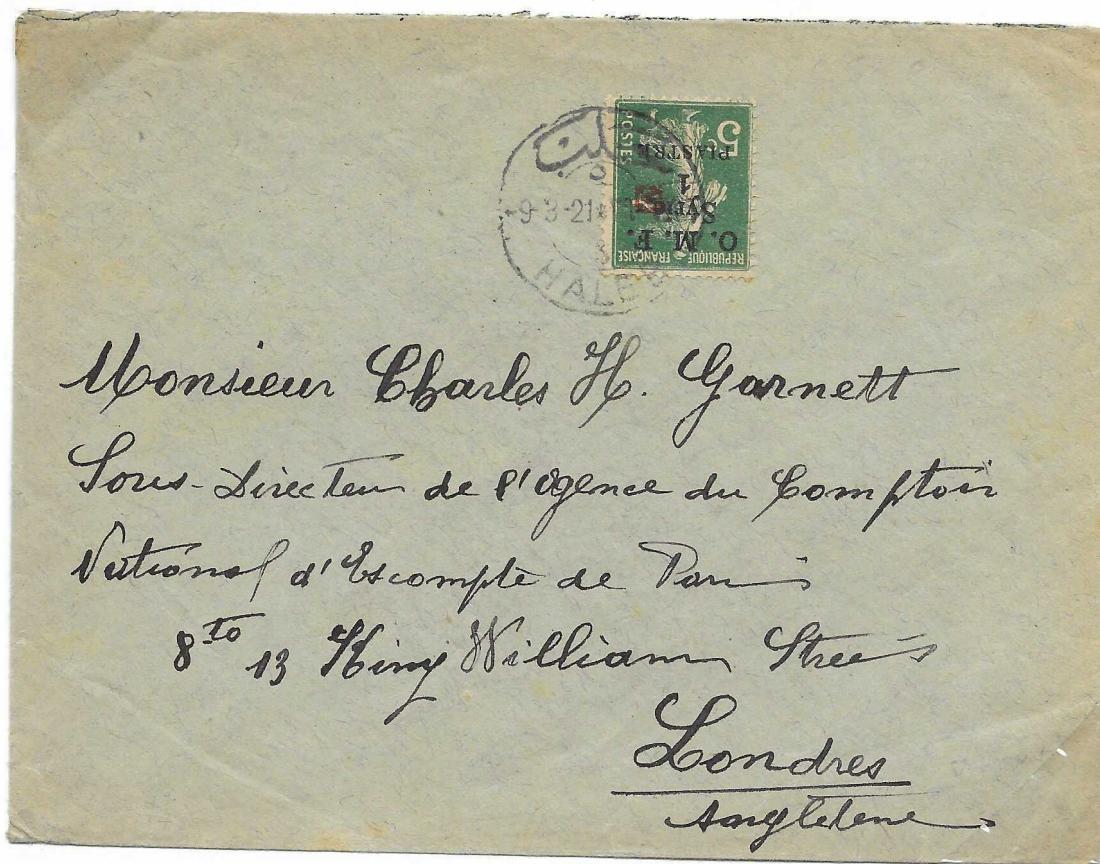 5c
POSTES
REPUBLIQUE FRANÇAISE
O. M. F.
Syrie
1
PIASTRE
-9-3-21
HALEB
Monsieur Charles H. Garnett
Sous-Directeur de l'Agence du Comptoir
National d'Escompte de Paris
8 to 13 King William Street
Londres
Angleterre